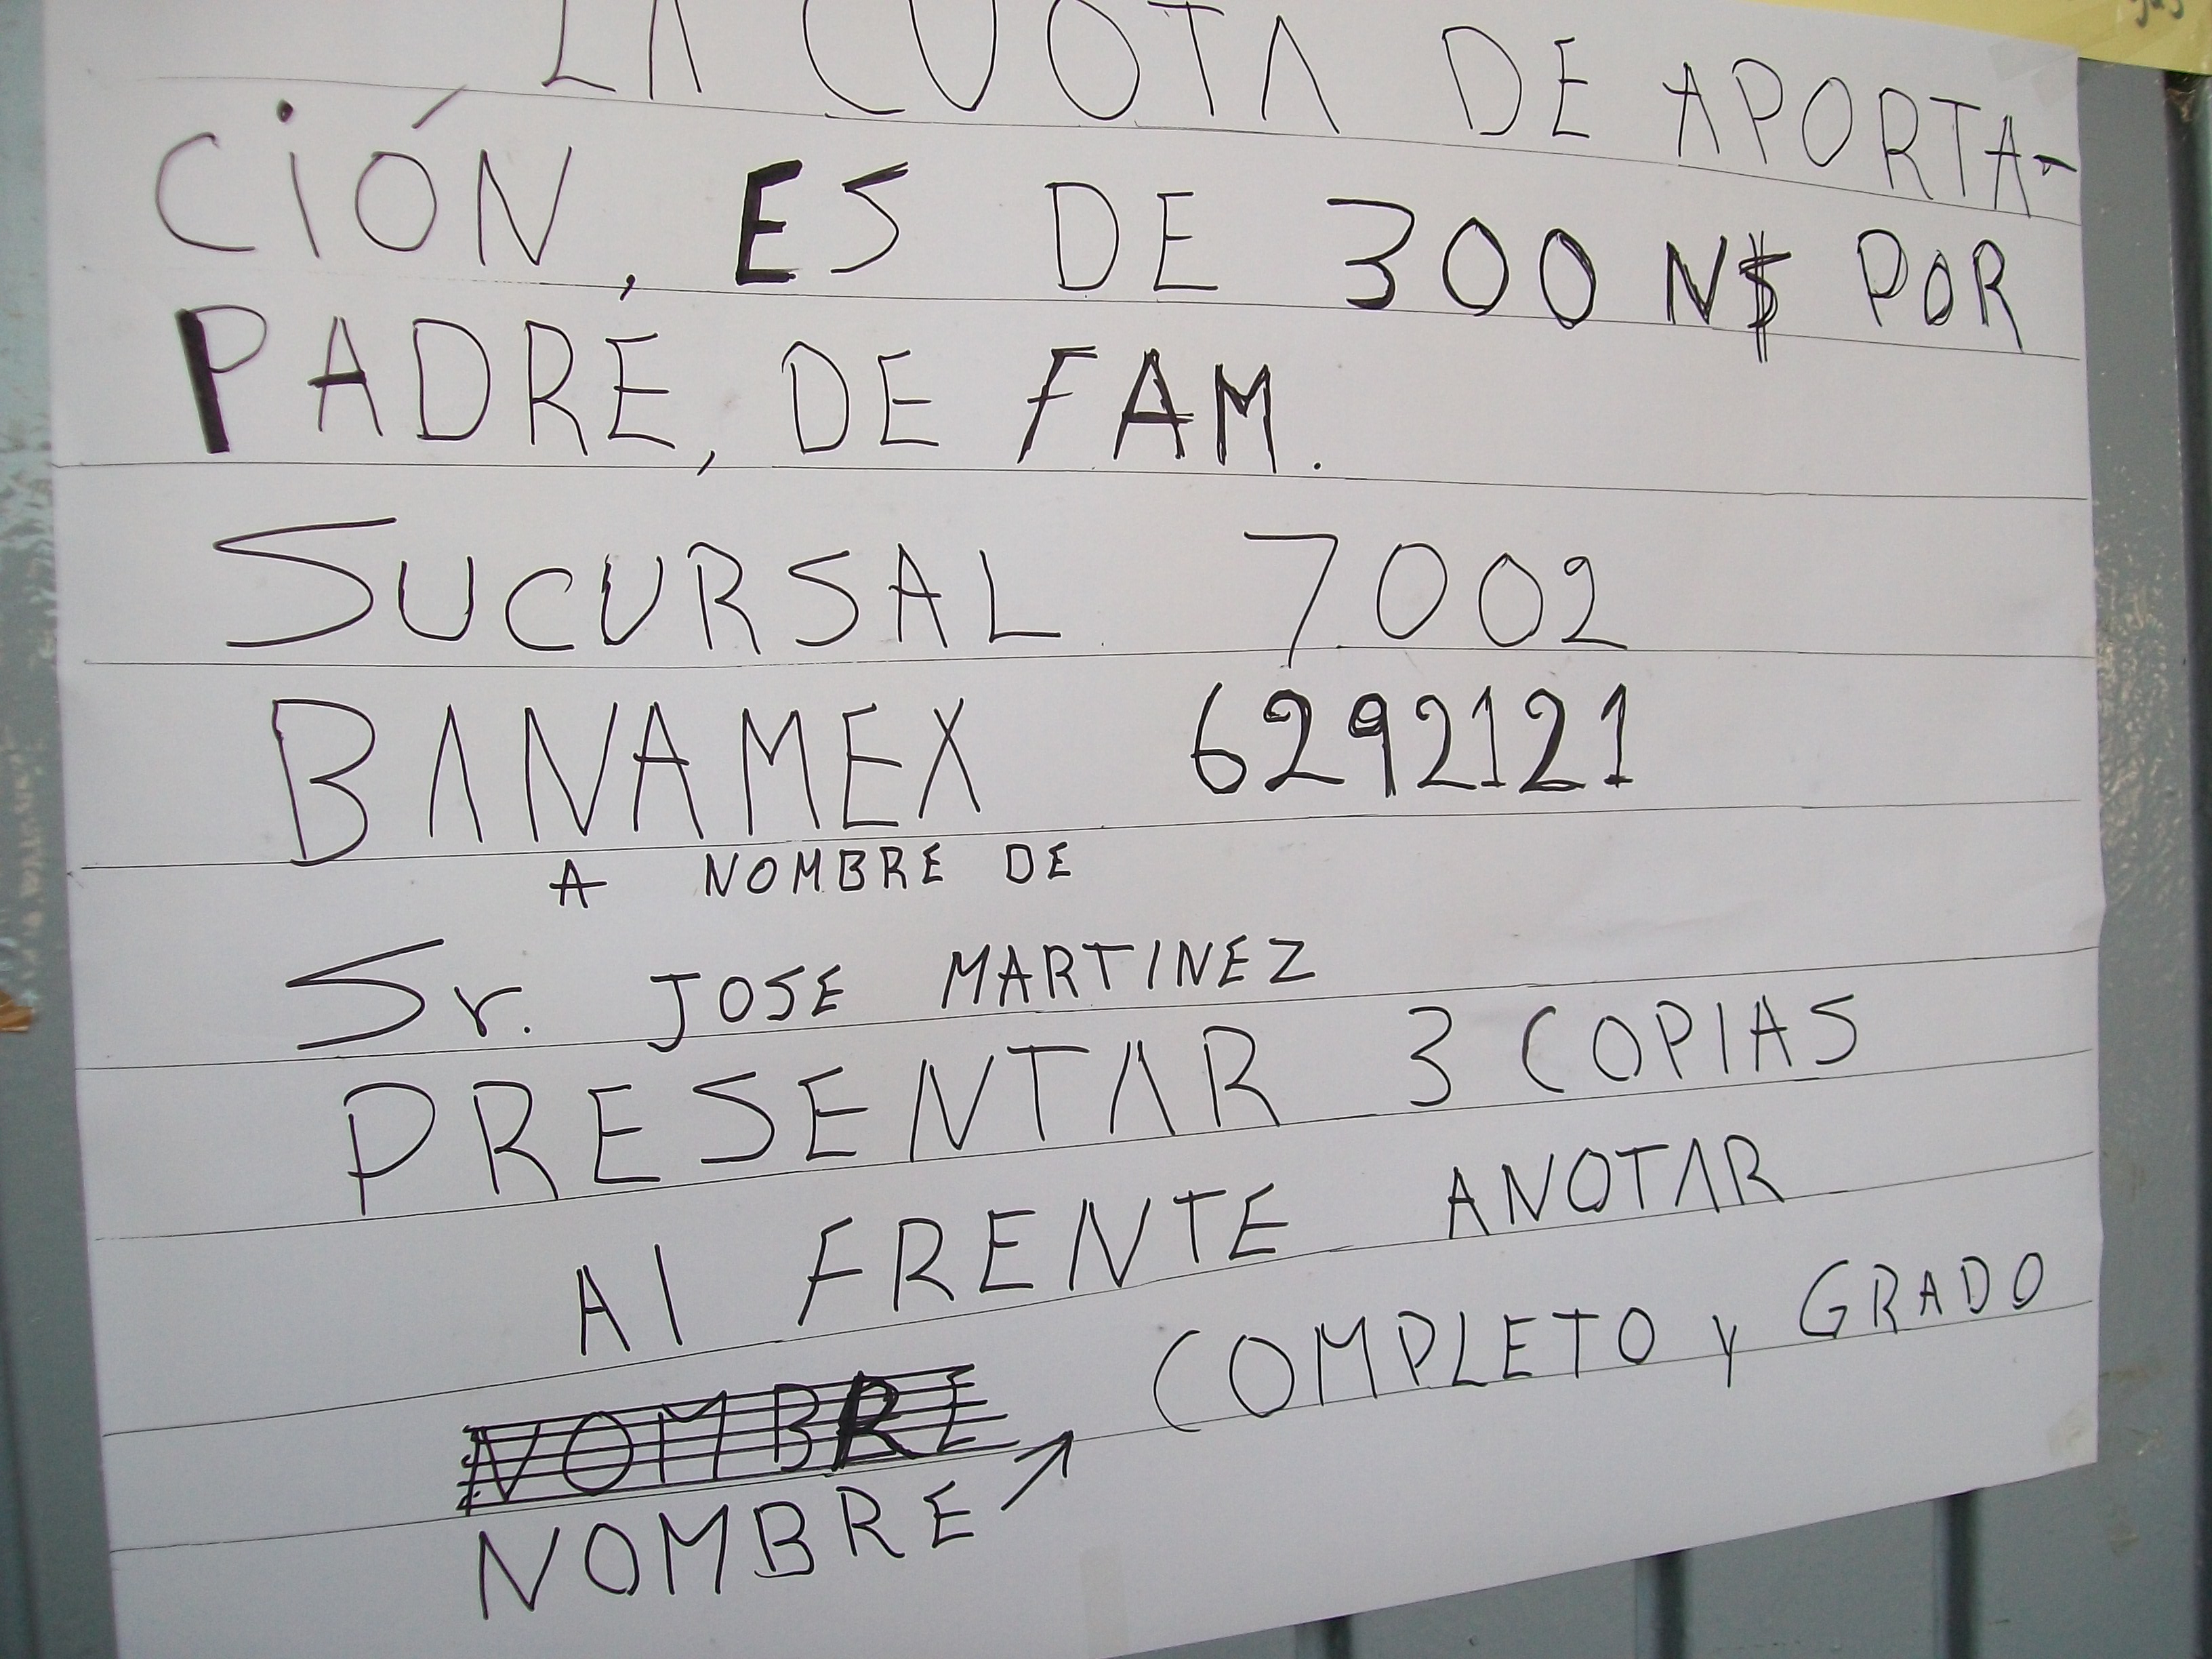 LA CUOTA DE APORTA-
CIÓN, ES DE 300 N$ POR
PADRE, DE FAM.
SUCURSAL 7002
BANAMEX 6292121
A NOMBRE DE
Sr. JOSE MARTINEZ
PRESENTAR 3 COPIAS
Al FRENTE ANOTAR
NOMBRE COMPLETO y GRADO
NOMBRE ↗